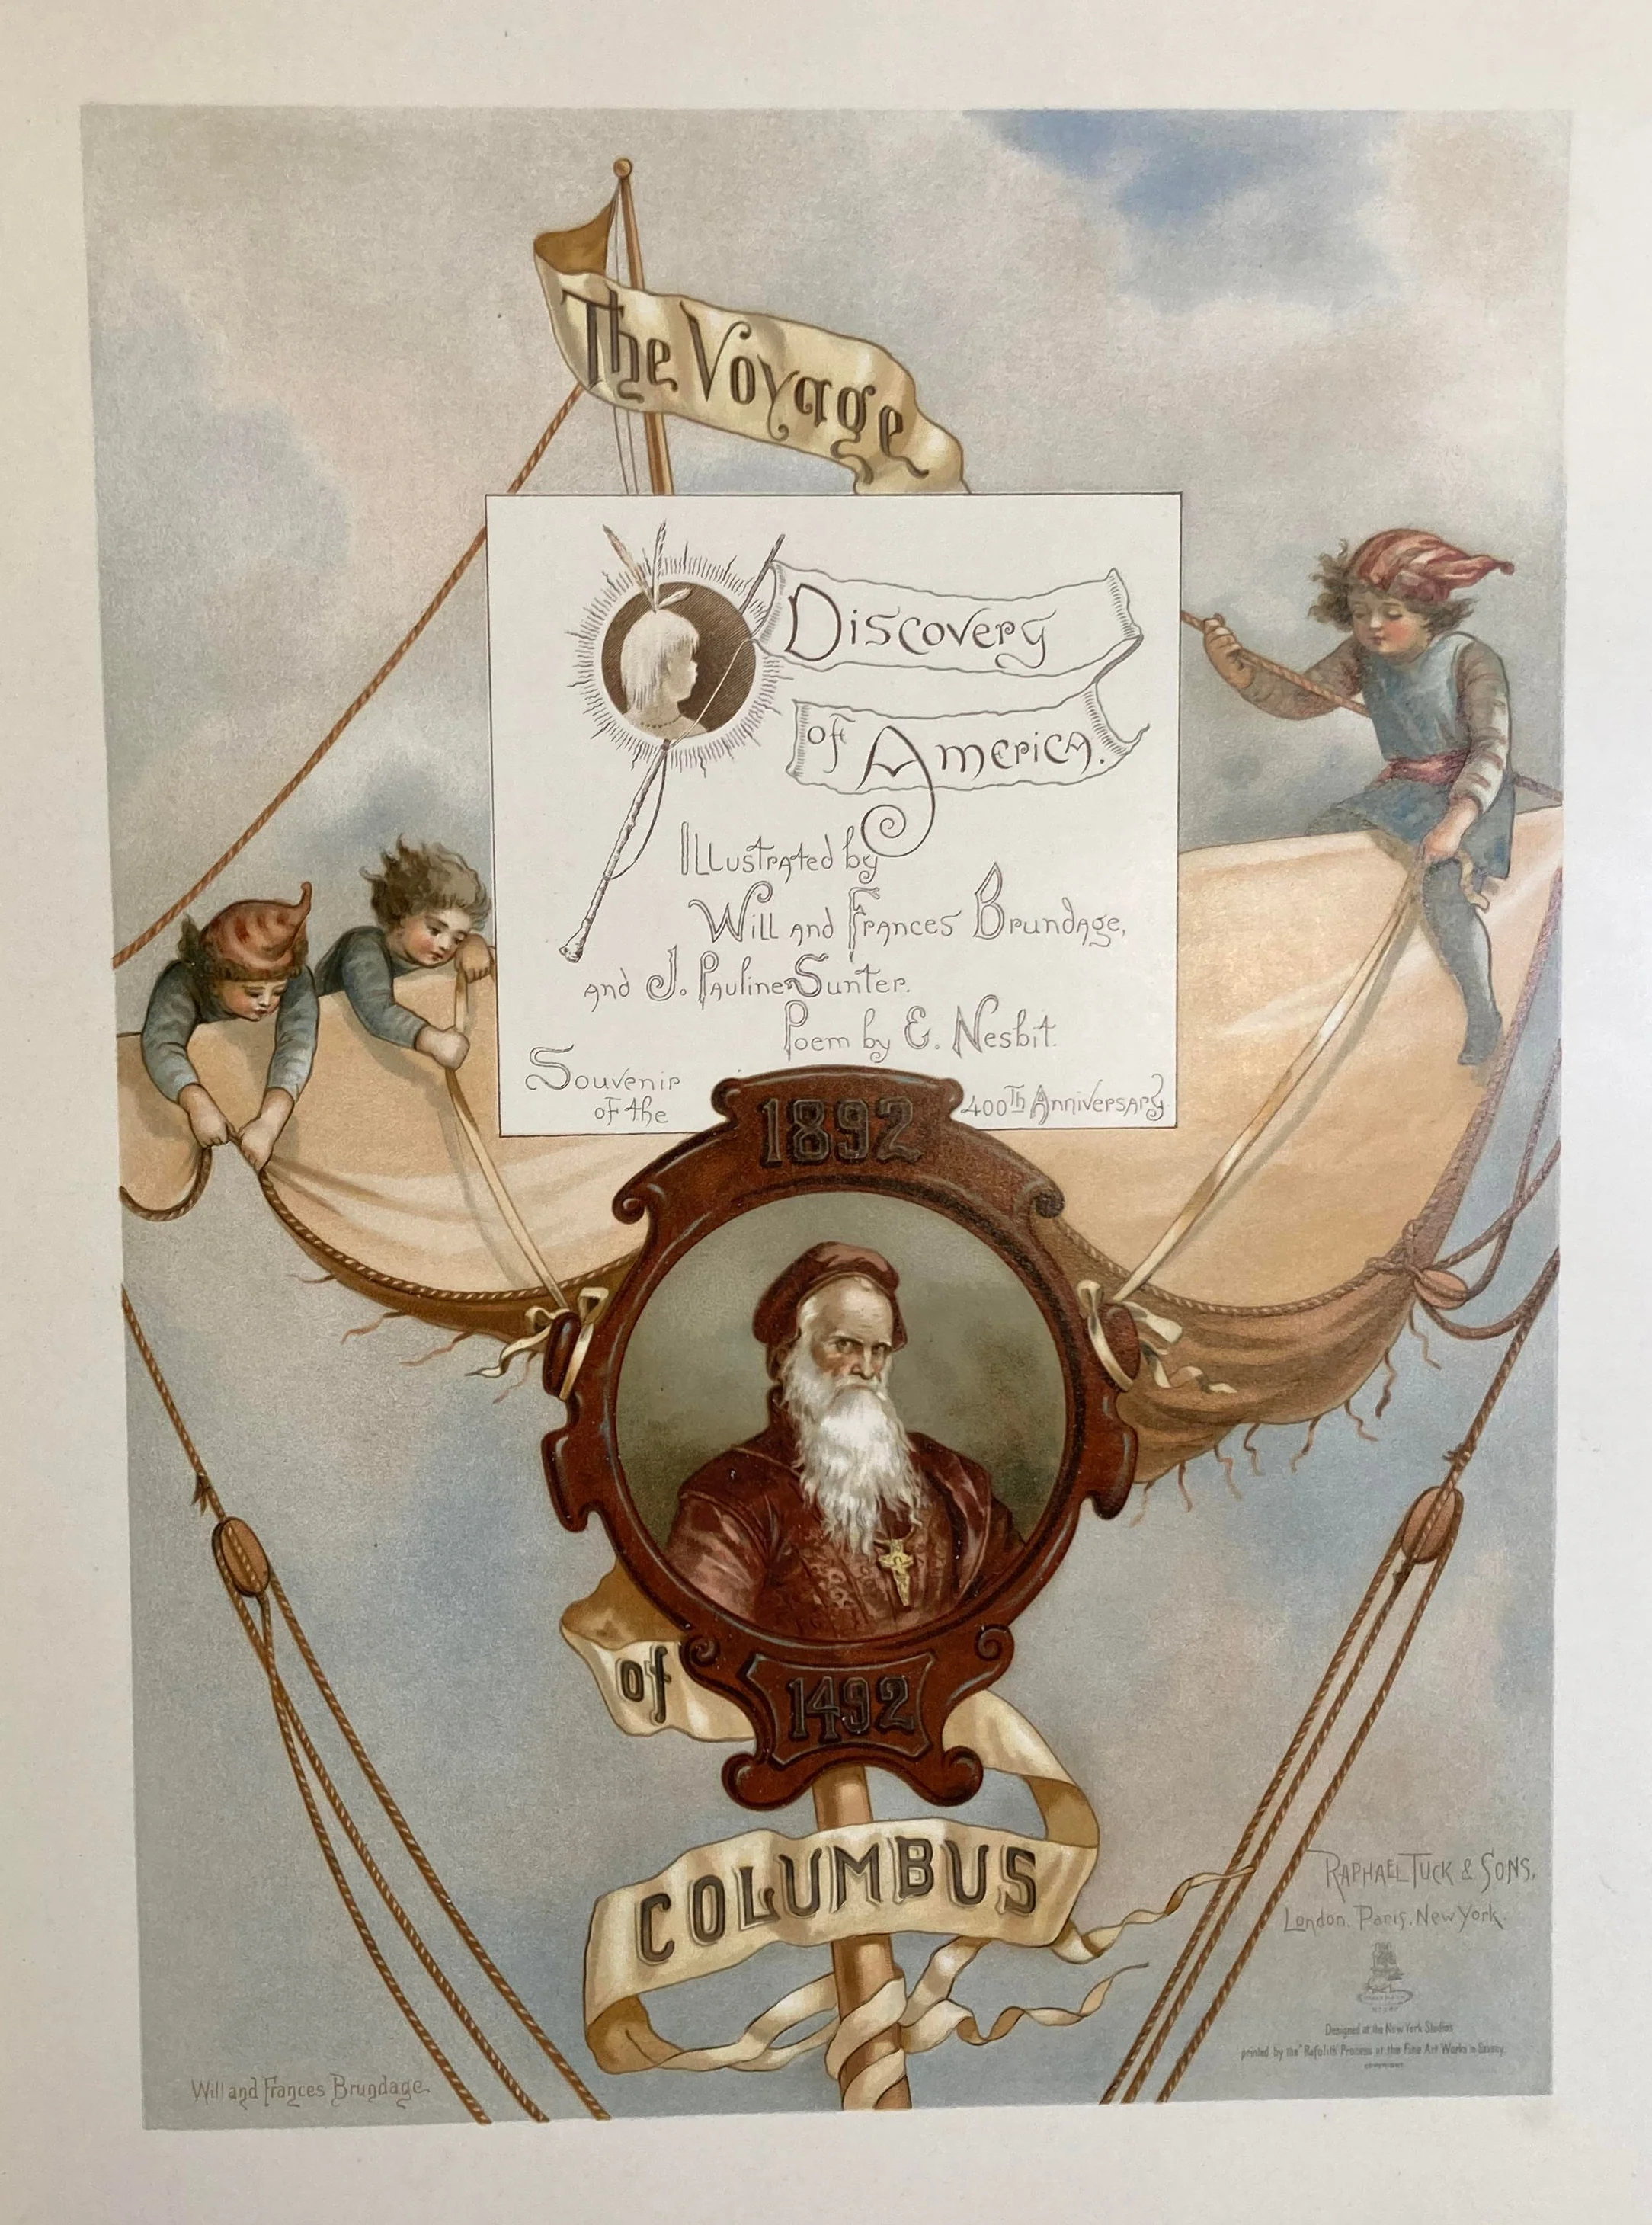 The Voyage
Discovery
of America.
Illustrated by
Will and Frances Brundage,
and J. Pauline Sunter.
Poem by E. Nesbit.
Souvenir
of the
400th Anniversary
1892
of
1492
COLUMBUS
RAPHAEL TUCK & SONS,
London. Paris. New York.
Designed at the New York Studios
printed by the "Rafolith" Process at the Fine Art Works in
Will and Frances Brundage.